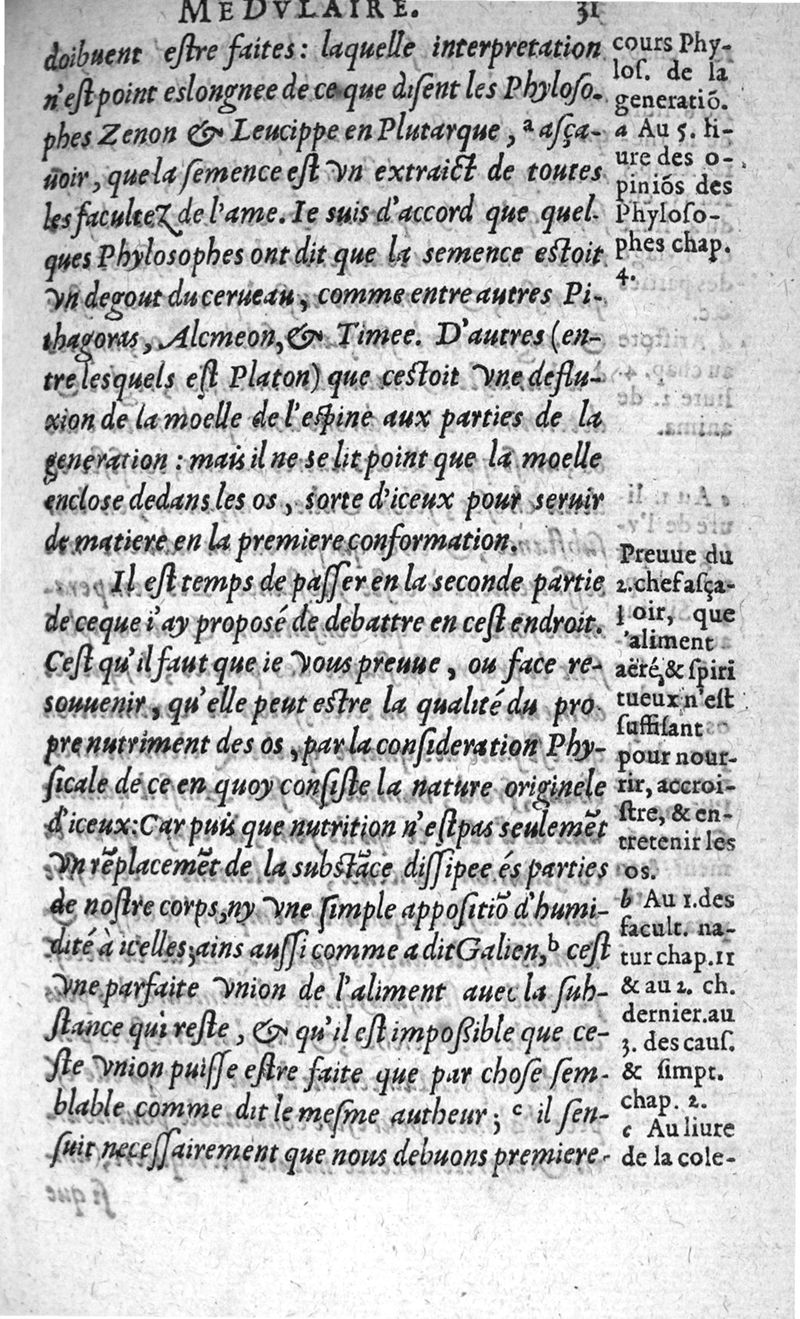 MEDVLAIRE. 31
doibuent eſtre faites: laquelle interpretation
n'eſt point eslongnee de ce que diſent les Phyloſo-
phes Zenon & Leucippe en Plutarque, ᵃ aſça-
uoir, que la ſemence eſt vn extraict de toutes
les facultez de l'ame. Ie suis d'accord que quel-
ques Phylosophes ont dit que la semence estoit
vn degout du cerueau, comme entre autres Pi-
thagoras, Alcmeon, & Timee. D'autres (en-
tre lesquels eſt Platon) que ceſtoit vne deflu-
xion de la moelle de l'eſpine aux parties de la
generation: mais il ne se lit point que la moelle
enclose dedans les os, sorte d'iceux pour seruir
de matiere en la premiere conformation.
Il eſt temps de paſſer en la seconde partie
de ceque i'ay proposé de debattre en ceſt endroit.
Ceſt qu'il faut que ie vous preuue, ou face re-
souuenir, qu'elle peut eſtre la qualité du pro
pre nutriment des os, par la conſideration Phy-
ſicale de ce en quoy conſiſte la nature originele
d'iceux: Car puis que nutrition n'eſt pas seulemēt
vn rēplacemēt de la subſtāce diſſipee és parties
de noſtre corps, ny vne ſimple appoſitiō d'humi-
dité à icelles; ains auſſi comme a dit Galien, ᵇ ceſt
vne parfaite vnion de l'aliment auec la ſub-
ſtance qui reſte, & qu'il eſt impoßible que ce-
ſte vnion puiſſe eſtre faite que par choſe ſem-
blable comme dit le meſme autheur; ᶜ il ſen-
ſuit neceſſairement que nous debuons premiere-
cours Phy-
loſ. de la
generatiō.
a Au 5. li-
ure des o-
piniōs des
Phyloſo-
phes chap.
4.
Preuue du
2. chef aſça-
oir, que
'aliment
aëré, & ſpiri
tueux n'eſt
ſuffiſant
pour nour-
rir, accroi-
ſtre, & en-
tretenir les
os.
b Au 1. des
facult. na-
tur chap. 11
& au 2. ch.
dernier. au
3. des cauſ.
& ſimpt.
chap. 2.
c Au liure
de la cole-